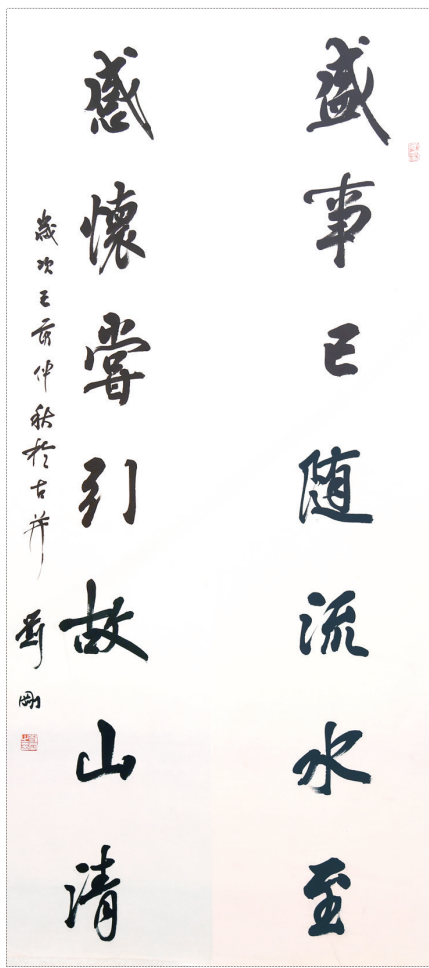 盛事已随流水至
感懷嘗引故山清
歲次壬寅仲秋於古并
劉剛